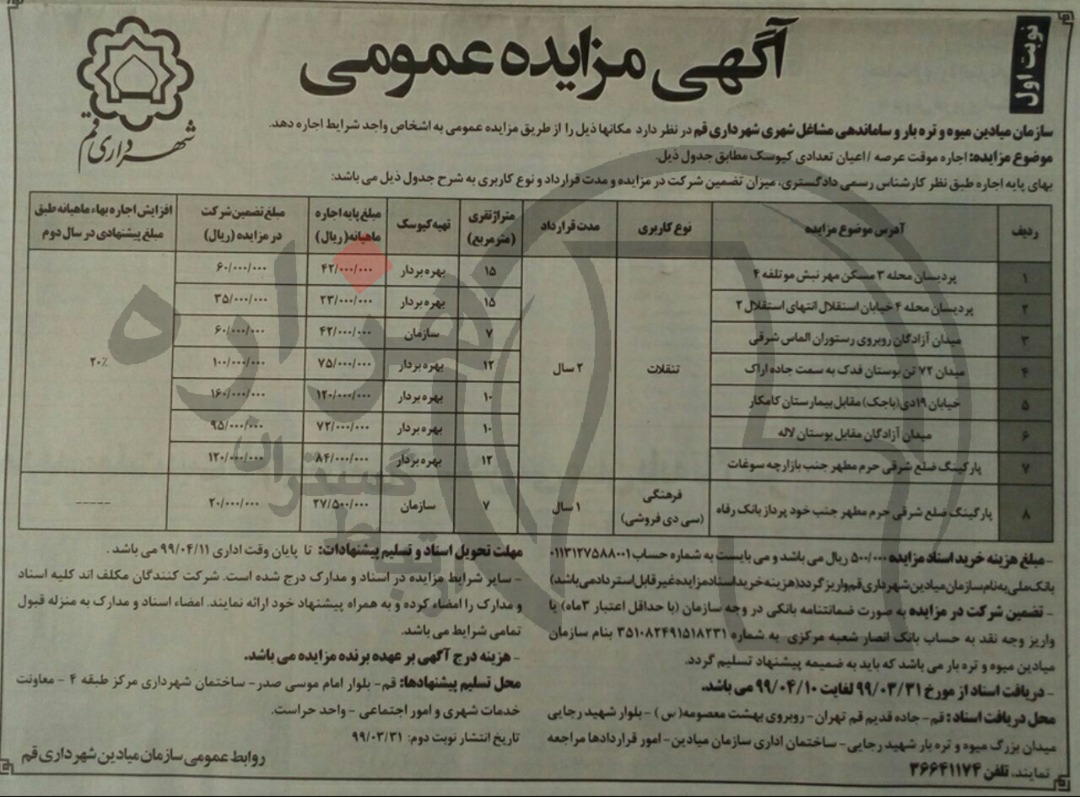 نوبت اول
آگهی مزایده عمومی
شهرداری قم
سازمان میادین میوه و تره بار و ساماندهی مشاغل شهری شهرداری قم در نظر دارد مکانها ذیل را از طریق مزایده عمومی به اشخاص واجد شرایط اجاره دهد.
موضوع مزایده: اجاره موقت عرصه / اعیان تعدادی کیوسک مطابق جدول ذیل.
بهای پایه اجاره طبق نظر کارشناس رسمی دادگستری، میزان تضمین شرکت در مزایده و مدت قرارداد و نوع کاربری به شرح جدول ذیل می باشد:
ردیف آدرس موضوع مزایده نوع کاربری مدت قرارداد متراژ تقری (مترمربع) تهیه کیوسک مبلغ پایه اجاره ماهیانه (ریال) مبلغ تضمین شرکت در مزایده (ریال) افزایش اجاره بهاء ماهیانه طبق مبلغ پیشنهادی در سال دوم
۱ پردیسان محله ۳ مسکن مهر نبش موتلفه ۴ تنقلات ۲ سال ۱۵ بهره بردار ۴۲/۰۰۰/۰۰۰ ۶۰/۰۰۰/۰۰۰ ۲۰٪
۲ پردیسان محله ۴ خیابان استقلال انتهای استقلال ۲ ۱۵ بهره بردار ۲۳/۰۰۰/۰۰۰ ۳۵/۰۰۰/۰۰۰
۳ میدان آزادگان روبروی رستوران الماس شرقی ۷ سازمان ۴۲/۰۰۰/۰۰۰ ۶۰/۰۰۰/۰۰۰
۴ میدان ۷۲ تن بوستان فدک به سمت جاده اراک ۱۲ بهره بردار ۷۵/۰۰۰/۰۰۰ ۱۰۰/۰۰۰/۰۰۰
۵ خیابان ۱۹دی(باجک) مقابل بیمارستان کامکار ۱۰ بهره بردار ۱۲۰/۰۰۰/۰۰۰ ۱۶۰/۰۰۰/۰۰۰
۶ میدان آزادگان مقابل بوستان لاله ۱۰ بهره بردار ۷۲/۰۰۰/۰۰۰ ۹۵/۰۰۰/۰۰۰
۷ پارکینگ ضلع شرقی حرم مطهر جنب بازارچه سوغات ۱۲ بهره بردار ۸۴/۰۰۰/۰۰۰ ۱۲۰/۰۰۰/۰۰۰
۸ پارکینگ ضلع شرقی حرم مطهر جنب خود پرداز بانک رفاه فرهنگی (سی دی فروشی) ۱ سال ۷ سازمان ۲۷/۵۰۰/۰۰۰ ۲۰/۰۰۰/۰۰۰ -----
- مبلغ هزینه خرید اسناد مزایده ۵۰۰/۰۰۰ ریال می باشد و می بایست به شماره حساب ۰۱۱۳۱۲۷۵۸۸۰۰۱
بانک ملی به نام سازمان میادین شهرداری قم واریز گردد(هزینه خرید اسناد مزایده غیر قابل استرداد می باشد)
- تضمین شرکت در مزایده به صورت ضمانتنامه بانکی در وجه سازمان (با حداقل اعتبار ۳ماه) یا
واریز وجه نقد به حساب بانک انصار شعبه مرکزی به شماره ۳۵۱۰۸۲۴۹۱۵۱۸۲۳۱ بنام سازمان
میادین میوه و تره بار می باشد که باید به ضمیمه پیشنهاد تسلیم گردد.
- دریافت اسناد از مورخ ۹۹/۰۳/۳۱ لغایت ۹۹/۰۴/۱۰ می باشد.
محل دریافت اسناد: قم- جاده قدیم قم تهران- روبروی بهشت معصومه(س) - بلوار شهید رجایی
میدان بزرگ میوه و تره بار شهید رجایی- ساختمان اداری سازمان میادین- امور قراردادها مراجعه
نمایند. تلفن ۳۶۶۴۱۱۷۴
مهلت تحویل اسناد و تسلیم پیشنهادات: تا پایان وقت اداری ۹۹/۰۴/۱۱ می باشد.
- سایر شرایط مزایده در اسناد و مدارک درج شده است. شرکت کنندگان مکلف اند کلیه اسناد
و مدارک را امضاء کرده و به همراه پیشنهاد خود ارائه نمایند. امضاء اسناد و مدارک به منزله قبول
تمامی شرایط می باشد.
- هزینه درج آگهی بر عهده برنده مزایده می باشد.
محل تسلیم پیشنهادها: قم- بلوار امام موسی صدر- ساختمان شهرداری مرکز طبقه ۴ - معاونت
خدمات شهری و امور اجتماعی - واحد حراست.
تاریخ انتشار نوبت دوم: ۹۹/۰۳/۳۱
روابط عمومی سازمان میادین شهرداری قم
هزاره
گستران